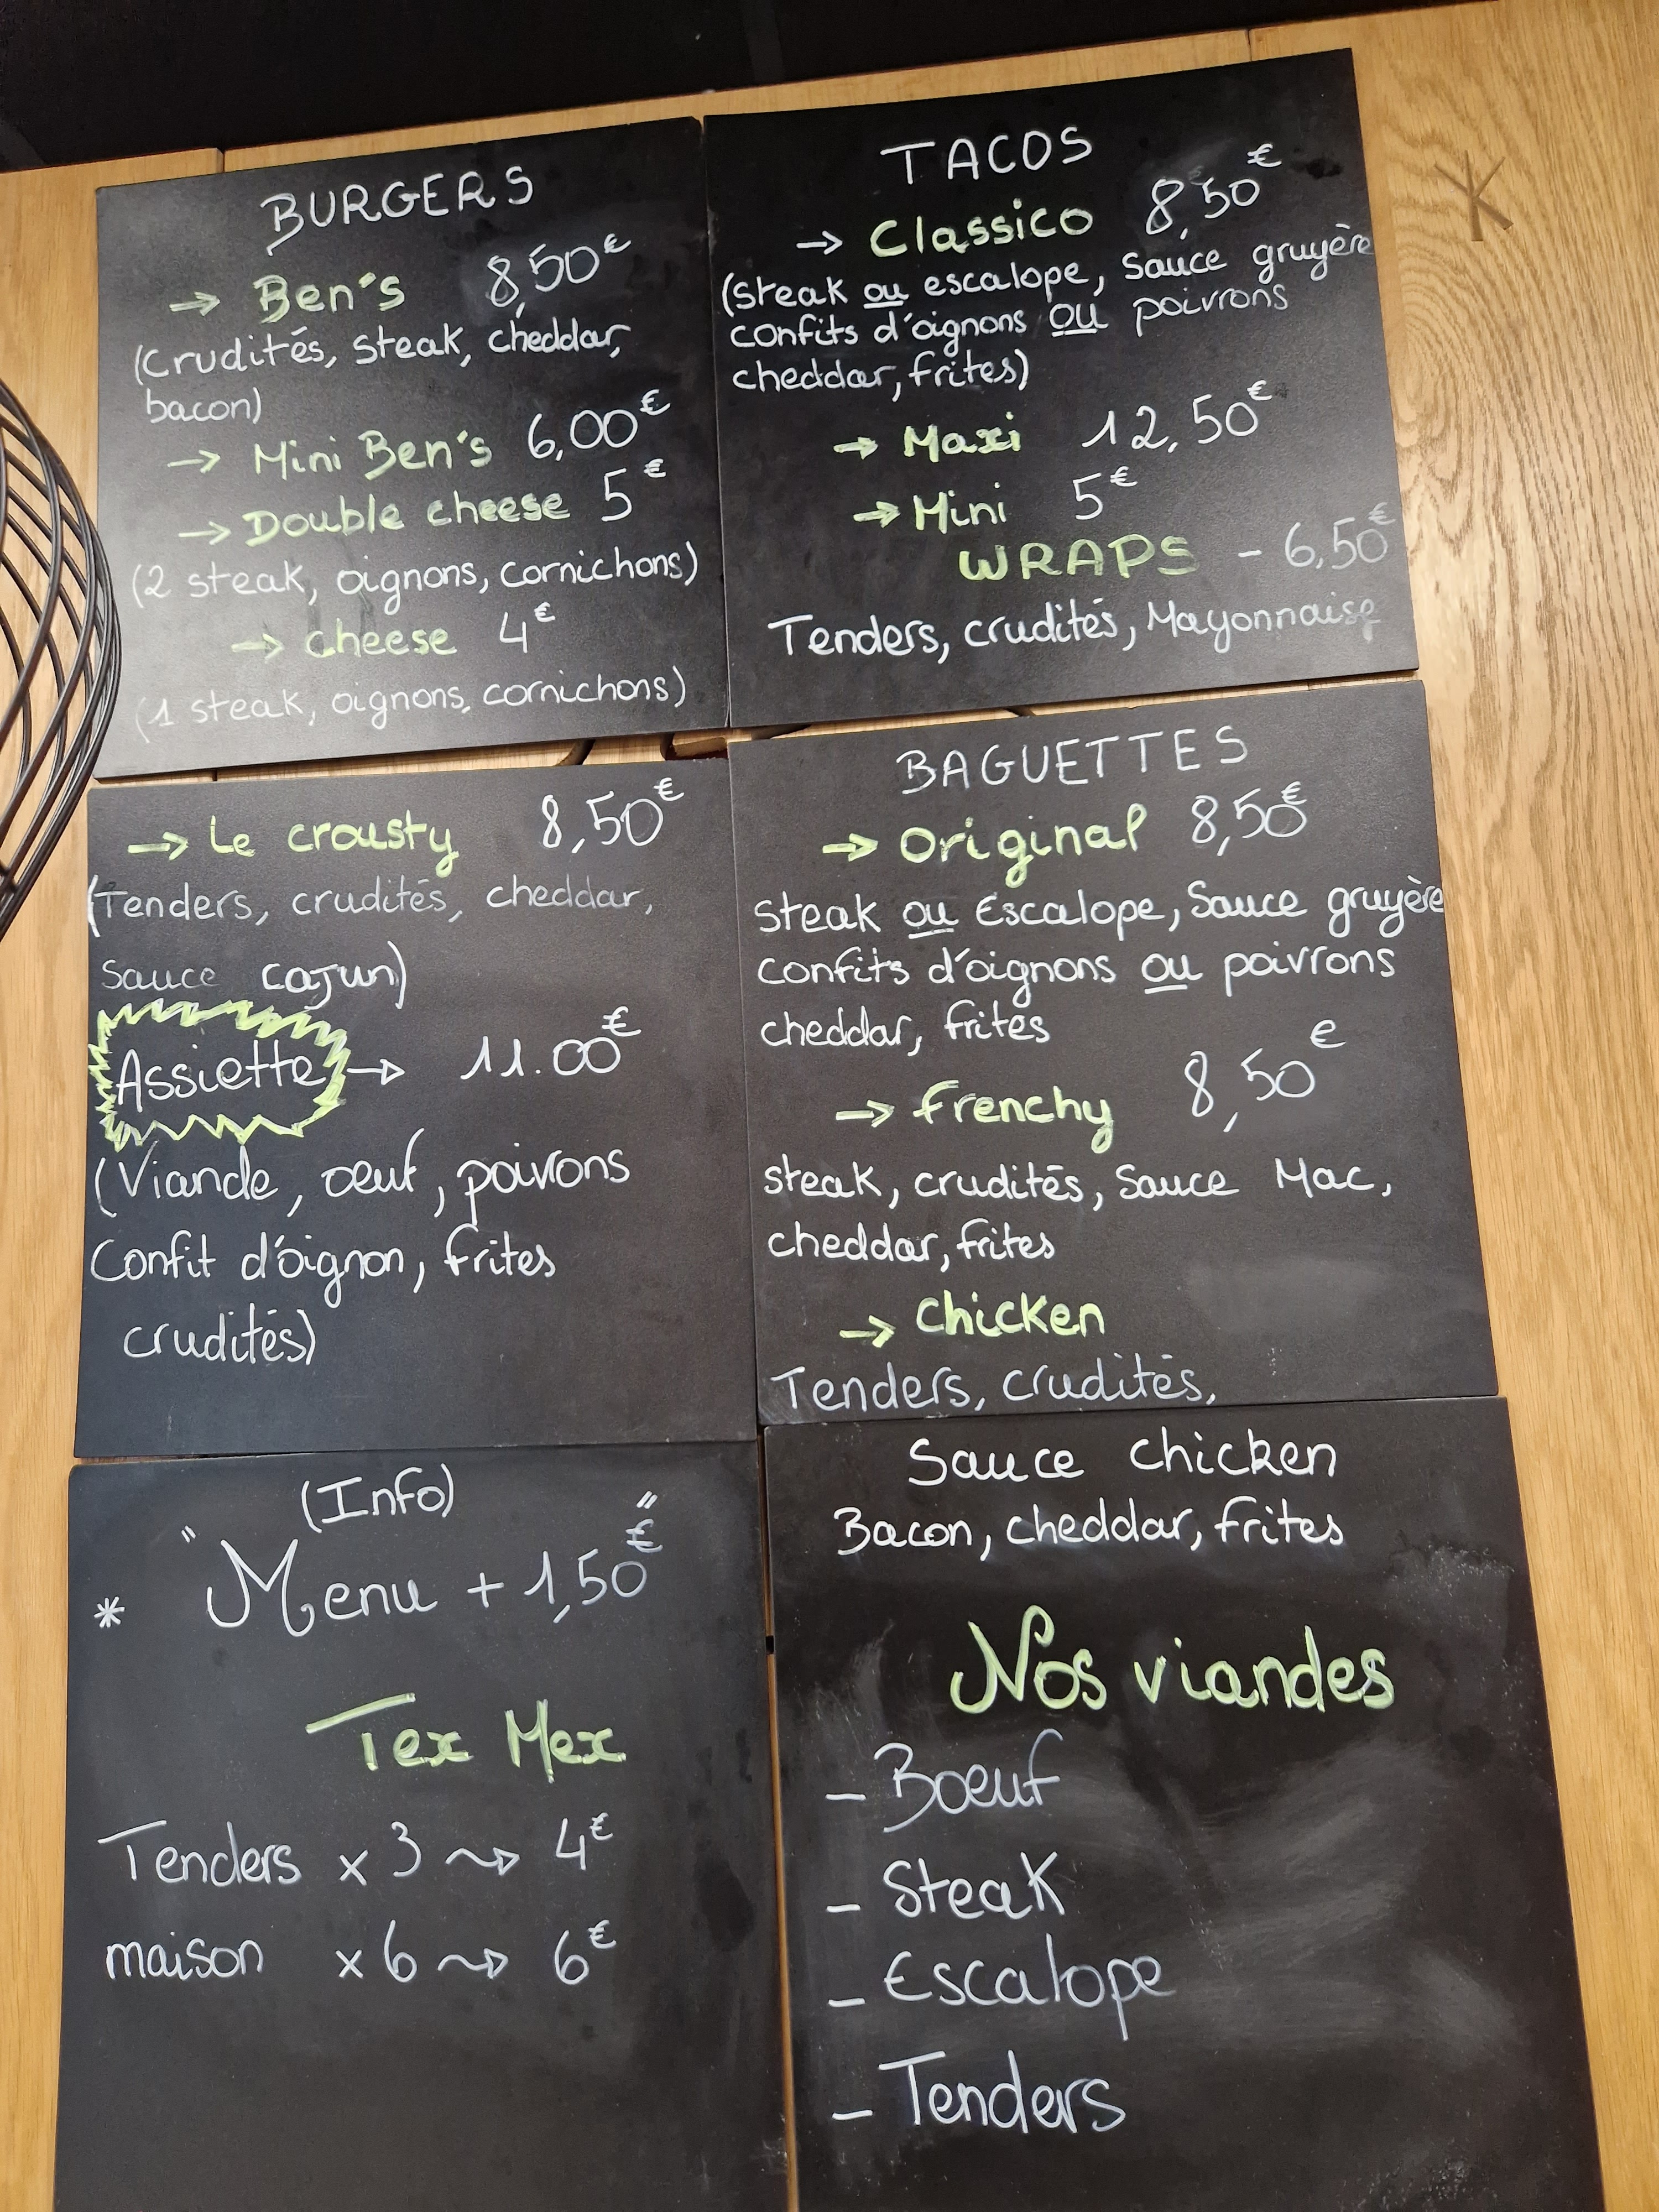 BURGERS
→ Ben's 8,50€
(Crudités, steak, cheddar,
bacon)
→ Mini Ben's 6,00€
→ Double cheese 5€
(2 steak, oignons, cornichons)
→ cheese 4€
(1 steak, oignons, cornichons)
TACOS
→ Classico 8,50€
(steak ou escalope, sauce gruyère
confits d'oignons ou poivrons
cheddar, frites)
→ Maxi 12,50€
→ Mini 5€
WRAPS - 6,50€
Tenders, crudités, Mayonnaise
→ Le crousty 8,50€
(Tenders, crudités, cheddar,
Sauce cajun)
Assiette → 11.00€
(Viande, oeuf, poivrons
Confit d'oignon, frites
crudités)
BAGUETTES
→ Original 8,50€
steak ou Escalope, Sauce gruyère
confits d'oignons ou poivrons
cheddar, frites
→ frenchy 8,50€
steak, crudités, Sauce Mac,
cheddar, frites
→ chicken
Tenders, crudités,
Sauce chicken
Bacon, cheddar, frites
(Info)
* "Menu + 1,50€"
Tex Mex
Tenders x 3 → 4€
maison x 6 → 6€
Nos viandes
- Boeuf
- Steak
- Escalope
- Tenders